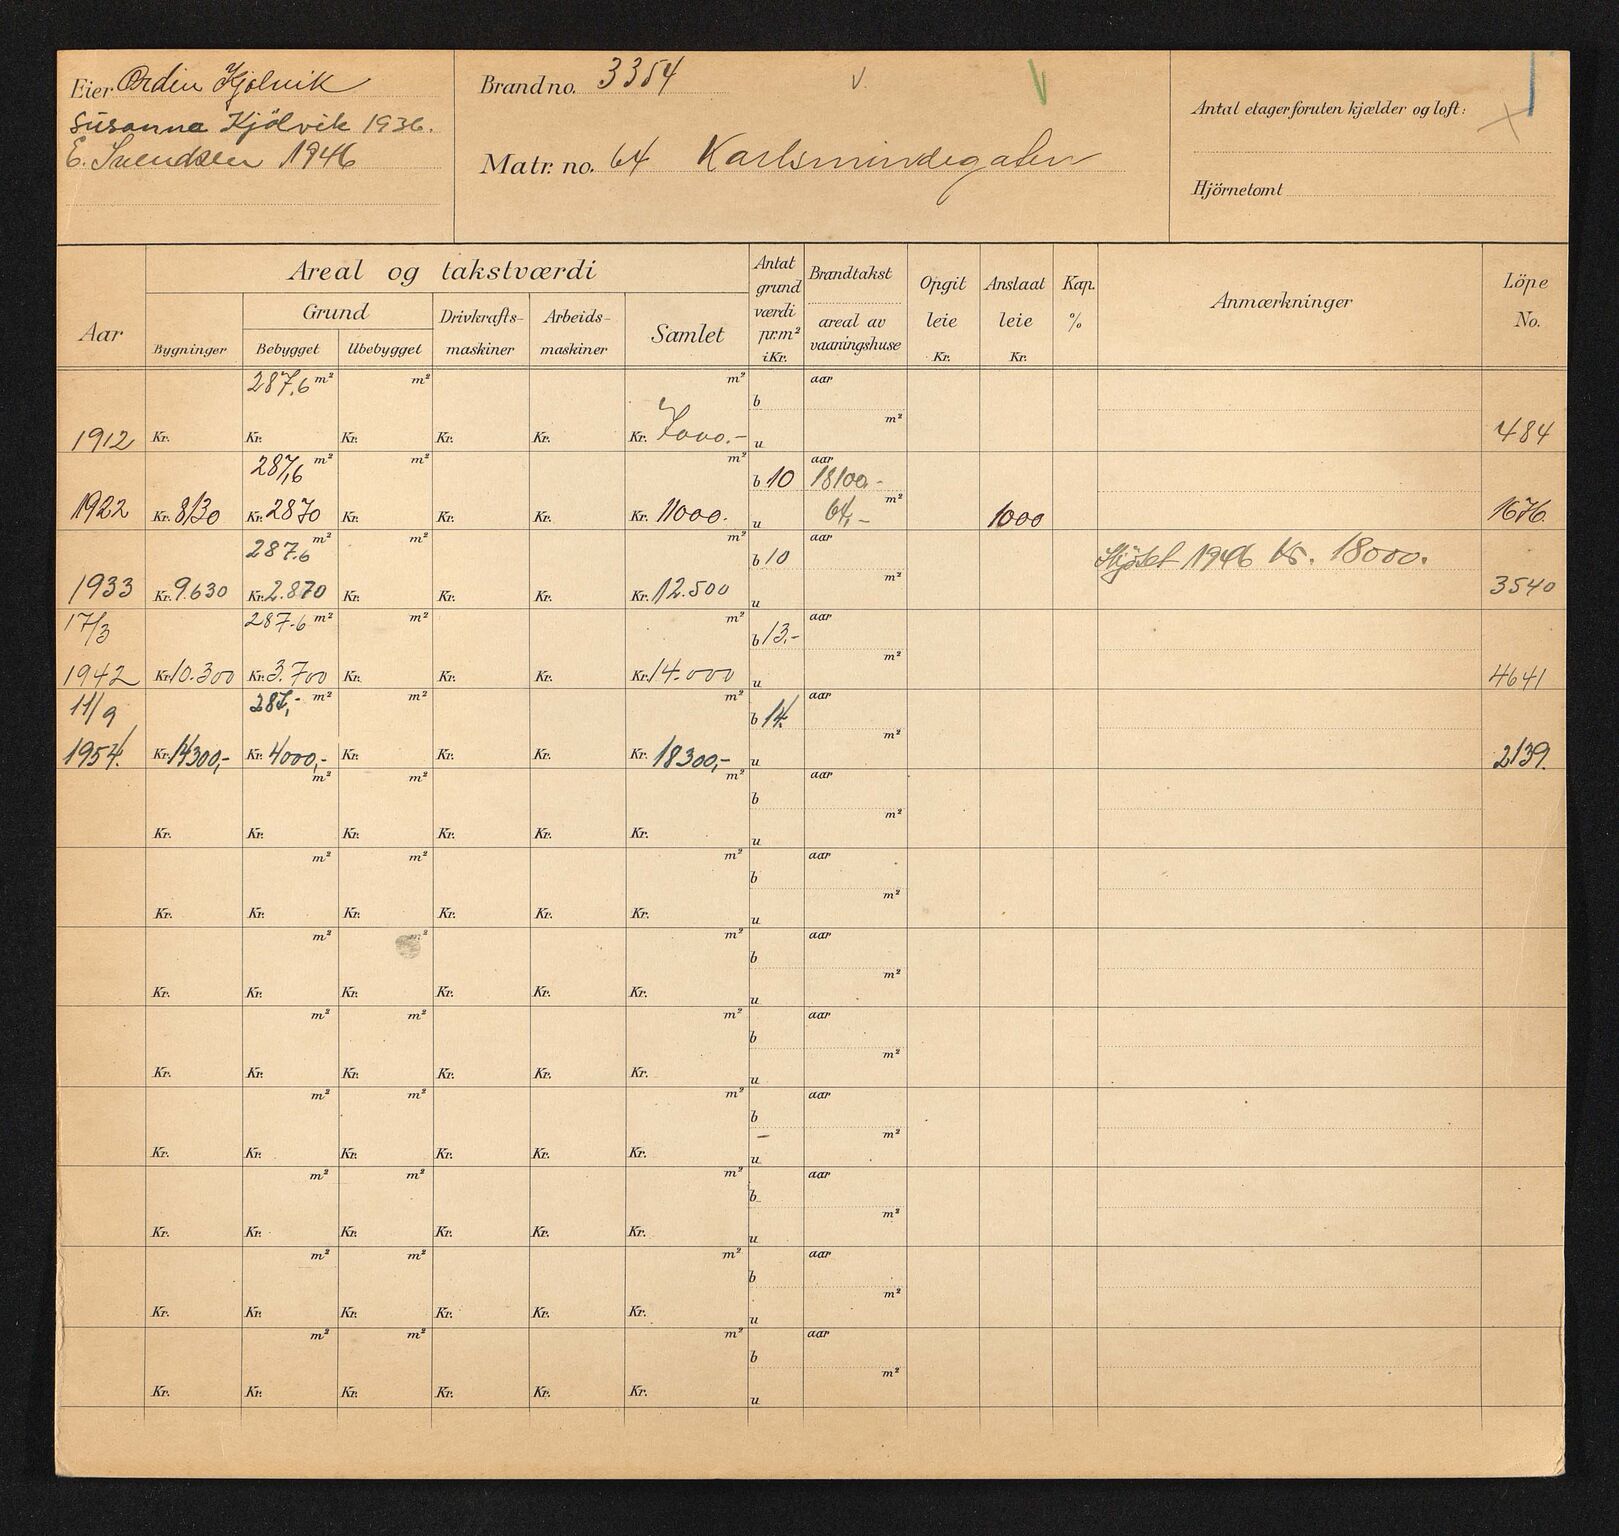 Eier Ordin Kjølvik
Susanna Kjölvik 1936.
E. Svendsen 1946
Brand no. 3354 v.
Matr. no. 64 Karlsmindegaten
Antal etager foruten kjælder og loft:
Hjörnetomt
Aar
Areal og takstværdi
Grund
Bygninger Bebygget Ubebygget
Drivkrafts-
maskiner
Arbeids-
maskiner
Samlet
Antat
grund
værdi
pr. m²
i Kr.
Brandtakst
areal av
vaaningshuse
Opgit
leie
Kr.
Anslaat
leie
Kr.
Kap.
%
Anmærkninger
Löpe
No.
287,6 m² m² m² aar
b
m²
1912 Kr. Kr. Kr. Kr. Kr. Kr. 7000.- u 484
287,6 m² m² m² aar
b 10 18100,-
m²
1922 Kr. 8130 Kr. 2870 Kr. Kr. Kr. Kr. 11000. u 64,- 1000 1676.
287.6 m² m² m² aar
b 10 Kjöpt 1946 Kr. 18000.
m²
1933 Kr. 9.630 Kr. 2.870 Kr. Kr. Kr. Kr. 12.500 u 3540
17/3 287.6 m² m² m² aar
b 13,-
m²
1942 Kr. 10.300 Kr. 3.700 Kr. Kr. Kr. Kr. 14.000 u 4641
11/9 287,- m² m² m² aar
b 14.
m²
1954. Kr. 14300,- Kr. 4000,- Kr. Kr. Kr. Kr. 18300,- u 2139.
m² m² m² aar
b
m²
Kr. Kr. Kr. Kr. Kr. Kr. u
m² m² m² aar
b
m²
Kr. Kr. Kr. Kr. Kr. Kr. u
m² m² m² aar
b
m²
Kr. Kr. Kr. Kr. Kr. Kr. u
m² m² m² aar
b
m²
Kr. Kr. Kr. Kr. Kr. Kr. u
m² m² m² aar
b
m²
Kr. Kr. Kr. Kr. Kr. Kr. u
m² m² m² aar
b
m²
Kr. Kr. Kr. Kr. Kr. Kr. u
m² m² m² aar
b
m²
Kr. Kr. Kr. Kr. Kr. Kr. u
m² m² m² aar
b
m²
Kr. Kr. Kr. Kr. Kr. Kr. u